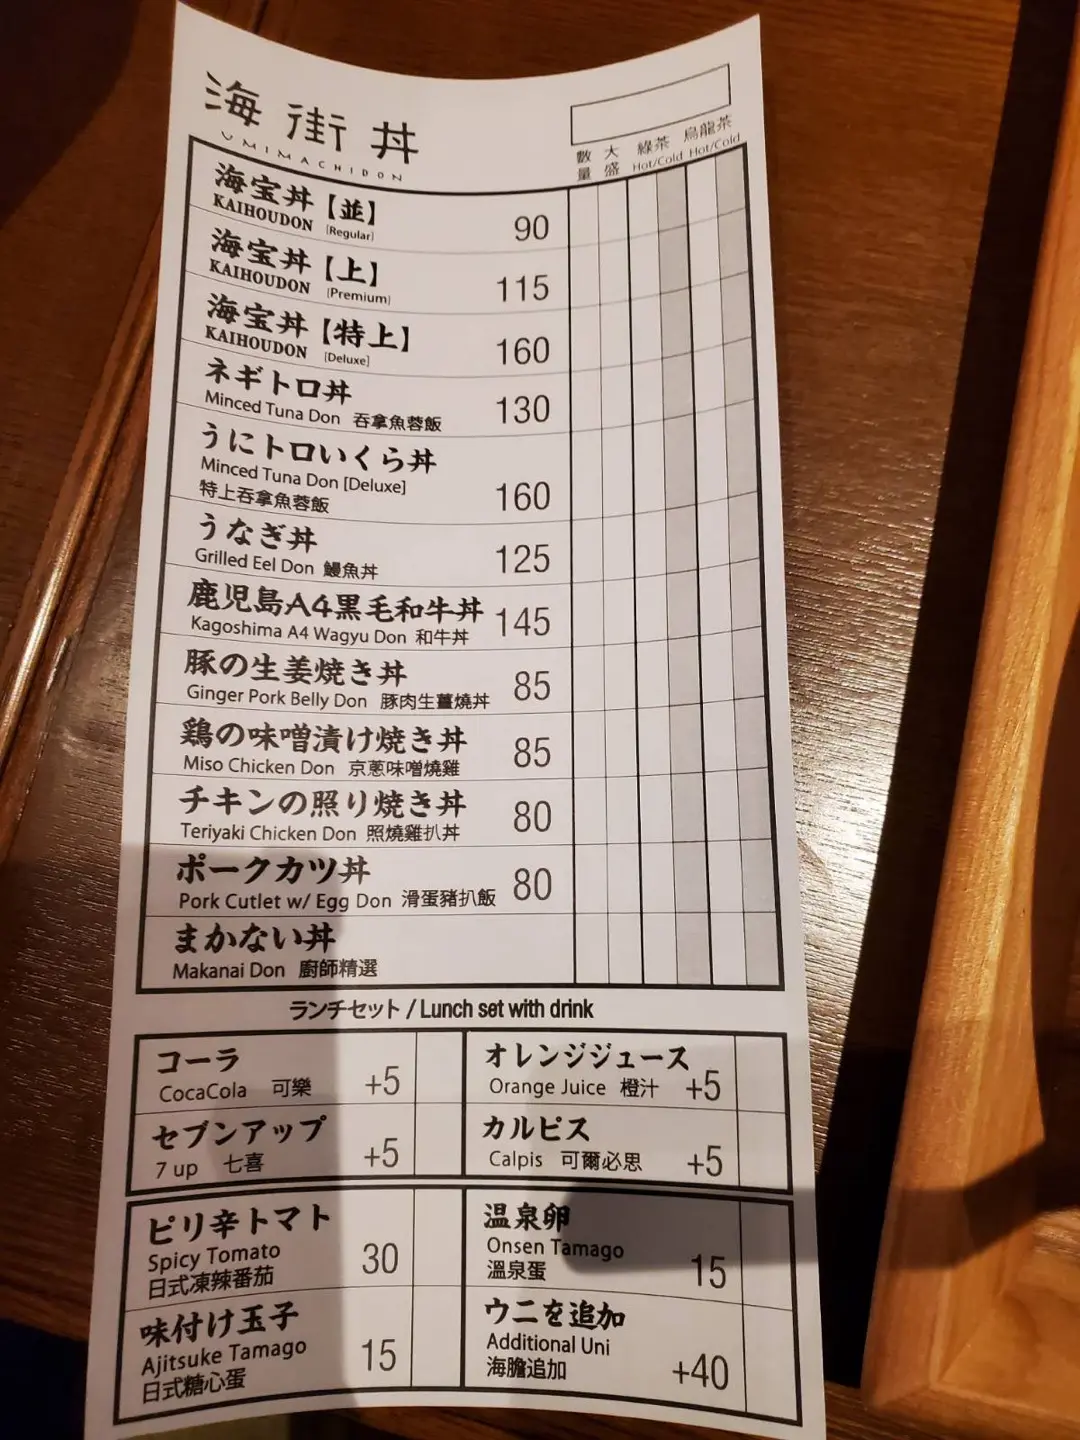 海街丼
UMIMACHIDON
數量 大盛 綠茶 Hot/Cold 烏龍茶 Hot/Cold
海宝丼【並】
KAIHOUDON [Regular] 90
海宝丼【上】
KAIHOUDON [Premium] 115
海宝丼【特上】
KAIHOUDON [Deluxe] 160
ネギトロ丼
Minced Tuna Don 吞拿魚蓉飯 130
うにトロいくら丼
Minced Tuna Don [Deluxe]
特上吞拿魚蓉飯 160
うなぎ丼
Grilled Eel Don 鰻魚丼 125
鹿児島A4黒毛和牛丼
Kagoshima A4 Wagyu Don 和牛丼 145
豚の生姜焼き丼
Ginger Pork Belly Don 豚肉生薑燒丼 85
鶏の味噌漬け焼き丼
Miso Chicken Don 京蔥味噌燒雞 85
チキンの照り焼き丼
Teriyaki Chicken Don 照燒雞扒丼 80
ポークカツ丼
Pork Cutlet w/ Egg Don 滑蛋豬扒飯 80
まかない丼
Makanai Don 廚師精選
ランチセット / Lunch set with drink
コーラ
CocaCola 可樂 +5
オレンジジュース
Orange Juice 橙汁 +5
セブンアップ
7 up 七喜 +5
カルピス
Calpis 可爾必思 +5
ピリ辛トマト
Spicy Tomato
日式凍辣番茄 30
温泉卵
Onsen Tamago
溫泉蛋 15
味付け玉子
Ajitsuke Tamago
日式糖心蛋 15
ウニを追加
Additional Uni
海膽追加 +40